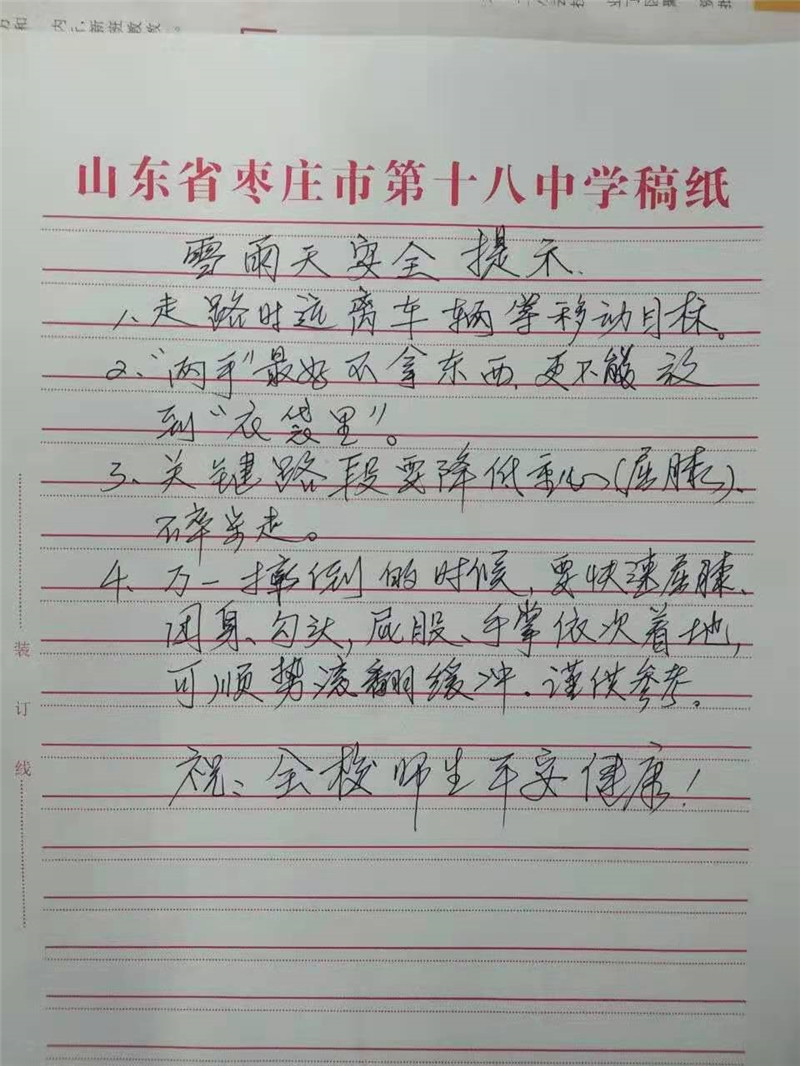 山东省枣庄市第十八中学稿纸
雪雨天安全提示.
1、走路时远离车辆等移动目标。
2、“两手”最好不拿东西,更不能放
到“衣袋里”。
3、关键路段要降低重心(屈膝)、
碎步走。
4、万一摔倒的时候,要快速屈膝、
团身、勾头,屁股、手掌依次着地,
可顺势滚翻缓冲、谨供参考。
祝:全校师生平安健康!
装
订
线